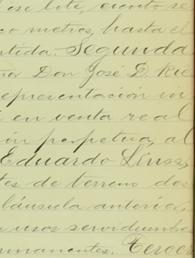 ese lote, ciento se
co metros, hasta el
ntida. Segunda
ñor Don José D. Rie
epresentación in
i en venta real
ión perpetua al
Eduardo
tes de terreno des
láusula anterior
usos servidumb
rmanentes. Terce